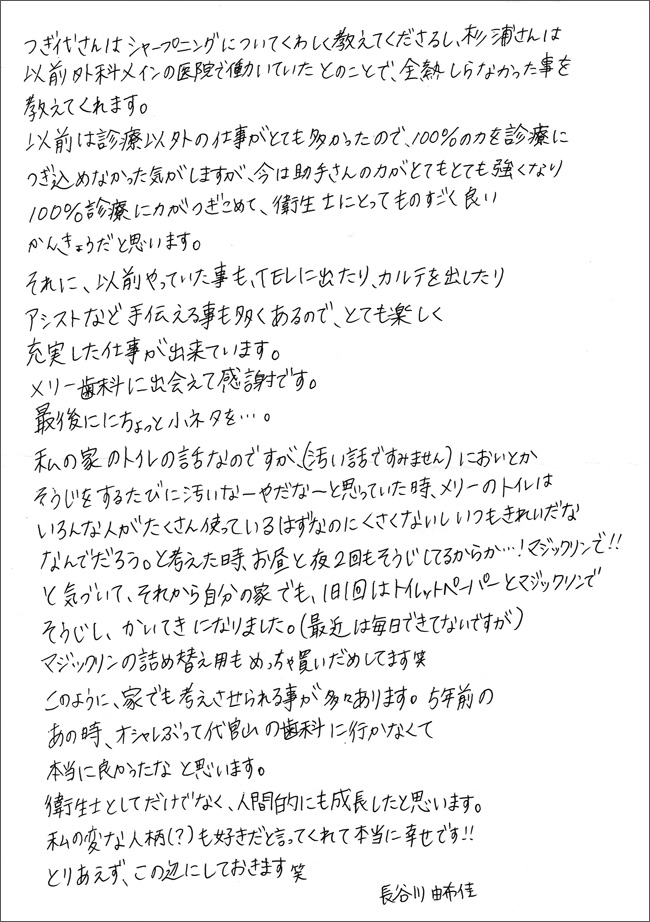 つぎ代さんはシャープニングについてくわしく教えてくださるし、杉浦さんは
以前外科メインの医院で働いていたとのことで、全熱しらなかった事を
教えてくれます。
以前は診療以外の仕事がとても多かったので、100%の力を診療に
つぎ込めなかった気がしますが、今は助手さんの力がとてもとても強くなり
100%診療に力がつぎこめて、衛生士にとってものすごく良い
かんきょうだと思います。
それに、以前やっていた事も、TELに出たり、カルテを出したり
アシストなど手伝える事も多くあるので、とても楽しく
充実した仕事が出来ています。
メリー歯科に出会えて感謝です。
最後ににちょっと小ネタを…。
私の家のトイレの話なのですが、(汚い話ですみません)においとか
そうじをするたびに汚いなーやだな〜と思っていた時、メリーのトイレは
いろんな人がたくさん使っているはずなのにくさくないしいつもきれいだな
なんでだろう。と考えた時、お昼と夜2回もそうじしてるからか…!マジックリンで!!
と気づいて、それから自分の家でも、1日1回はトイレットペーパーとマジックリンで
そうじし、かいてきになりました。(最近は毎日できてないですが)
マジックリンの詰め替え用もめっちゃ買いだめしてます笑
このように、家でも考えさせられる事が多々あります。5年前の
あの時、オシャレぶって代官山の歯科に行かなくて
本当に良かったなと思います。
衛生士としてだけでなく、人間的にも成長したと思います。
私の変な人柄(?)も好きだと言ってくれて本当に幸せです!!
とりあえず、この辺にしておきます笑
長谷川 由希佳